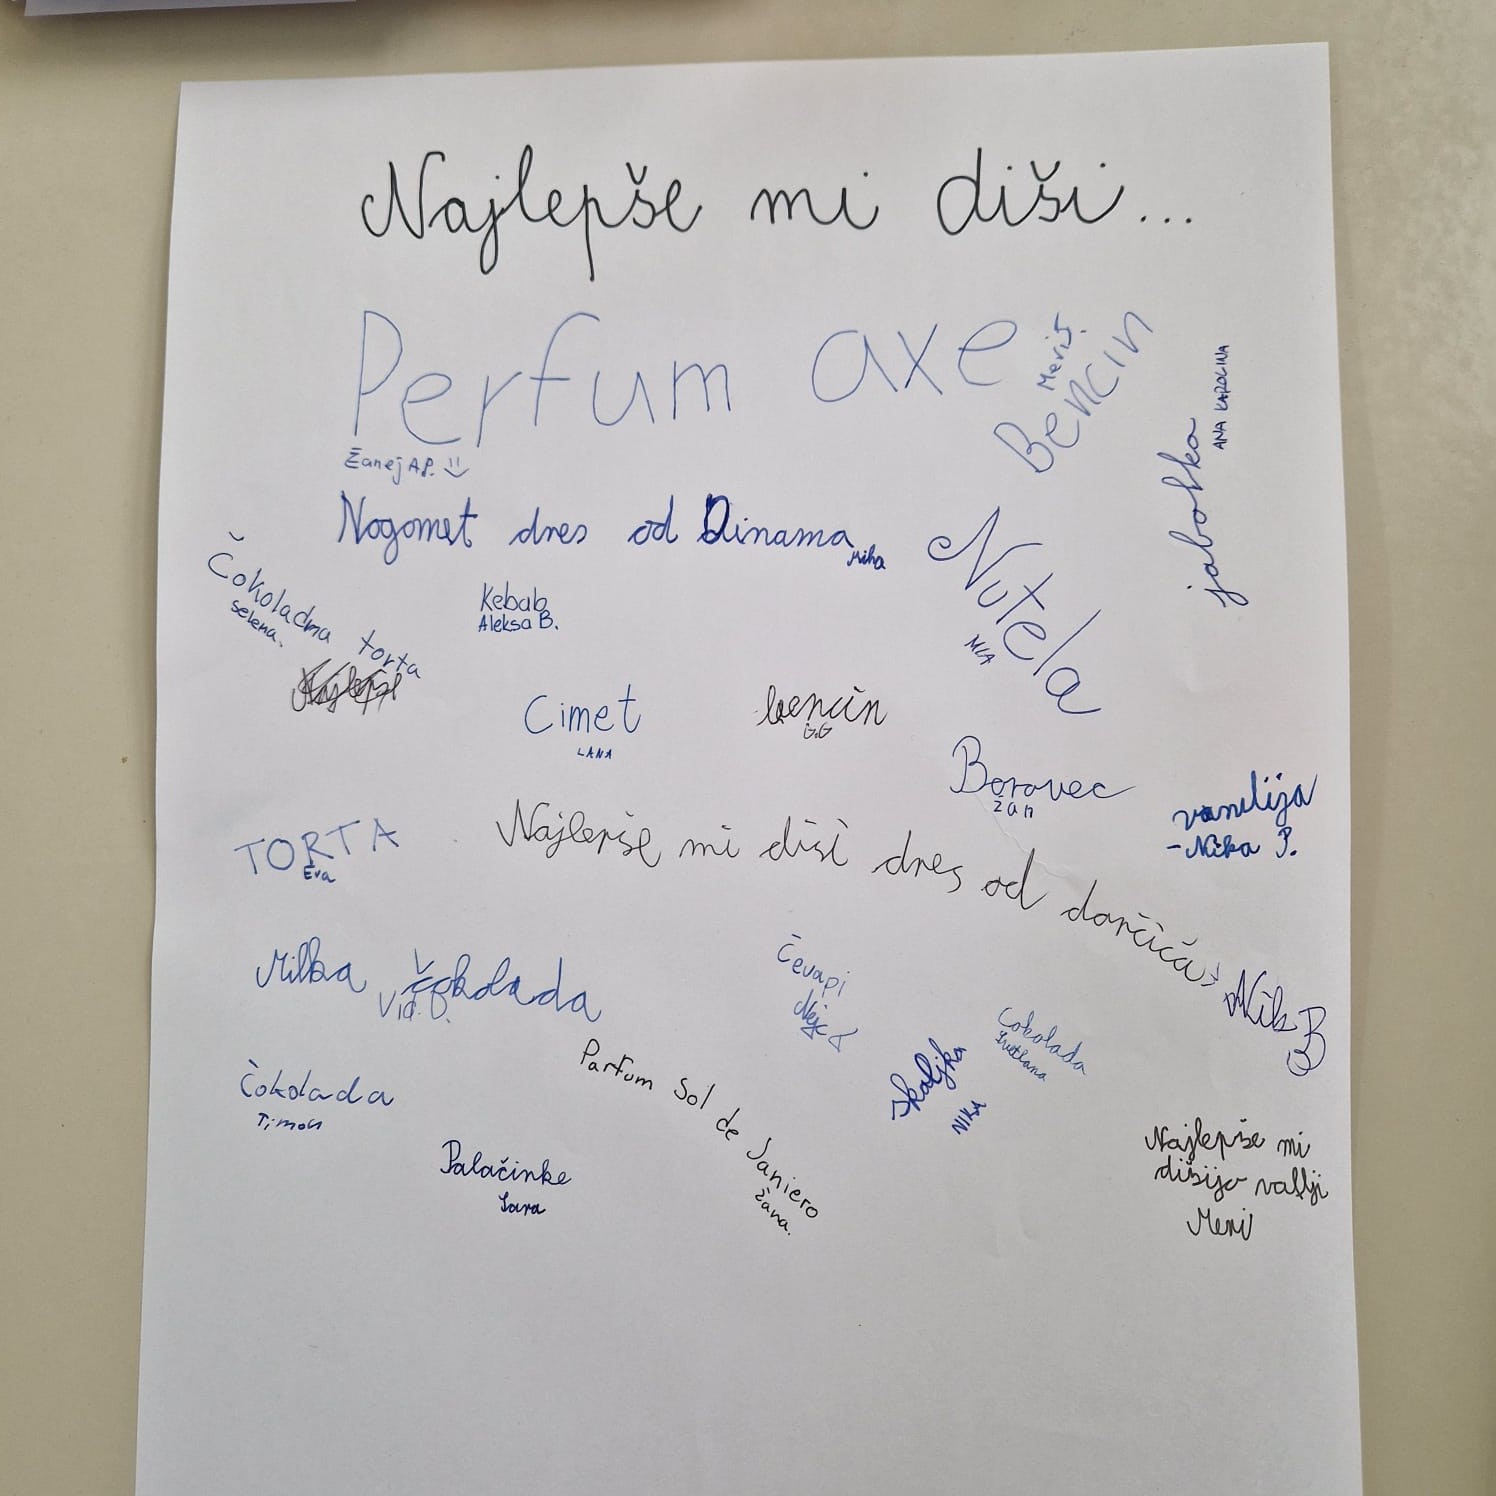 Najlepše mi diši...
Perfum axe
Žanej A.P.
Meri S.
Bencin
jabolka
ANA KAROLINA
Nogomet dres od Dinama
Miha
Čokoladna torta
Selena.
Kebab
Aleksa B.
Nutela
MIA
Cimet
LANA
bencin
G.G
Borovec
Žan
vanilija
-Nika P.
TORTA
Eva
Najlepše mi diši dres od dončića
Nik B
Milka čokolada
Vid. D.
Čevapi
Nejc
Čokolada
Svetlana
Školjka
NIKA
Čokolada
Timon
Parfum Sol de Janiero
Žana.
Palačinke
Sara
Najlepše mi
dišijo valji
Meri